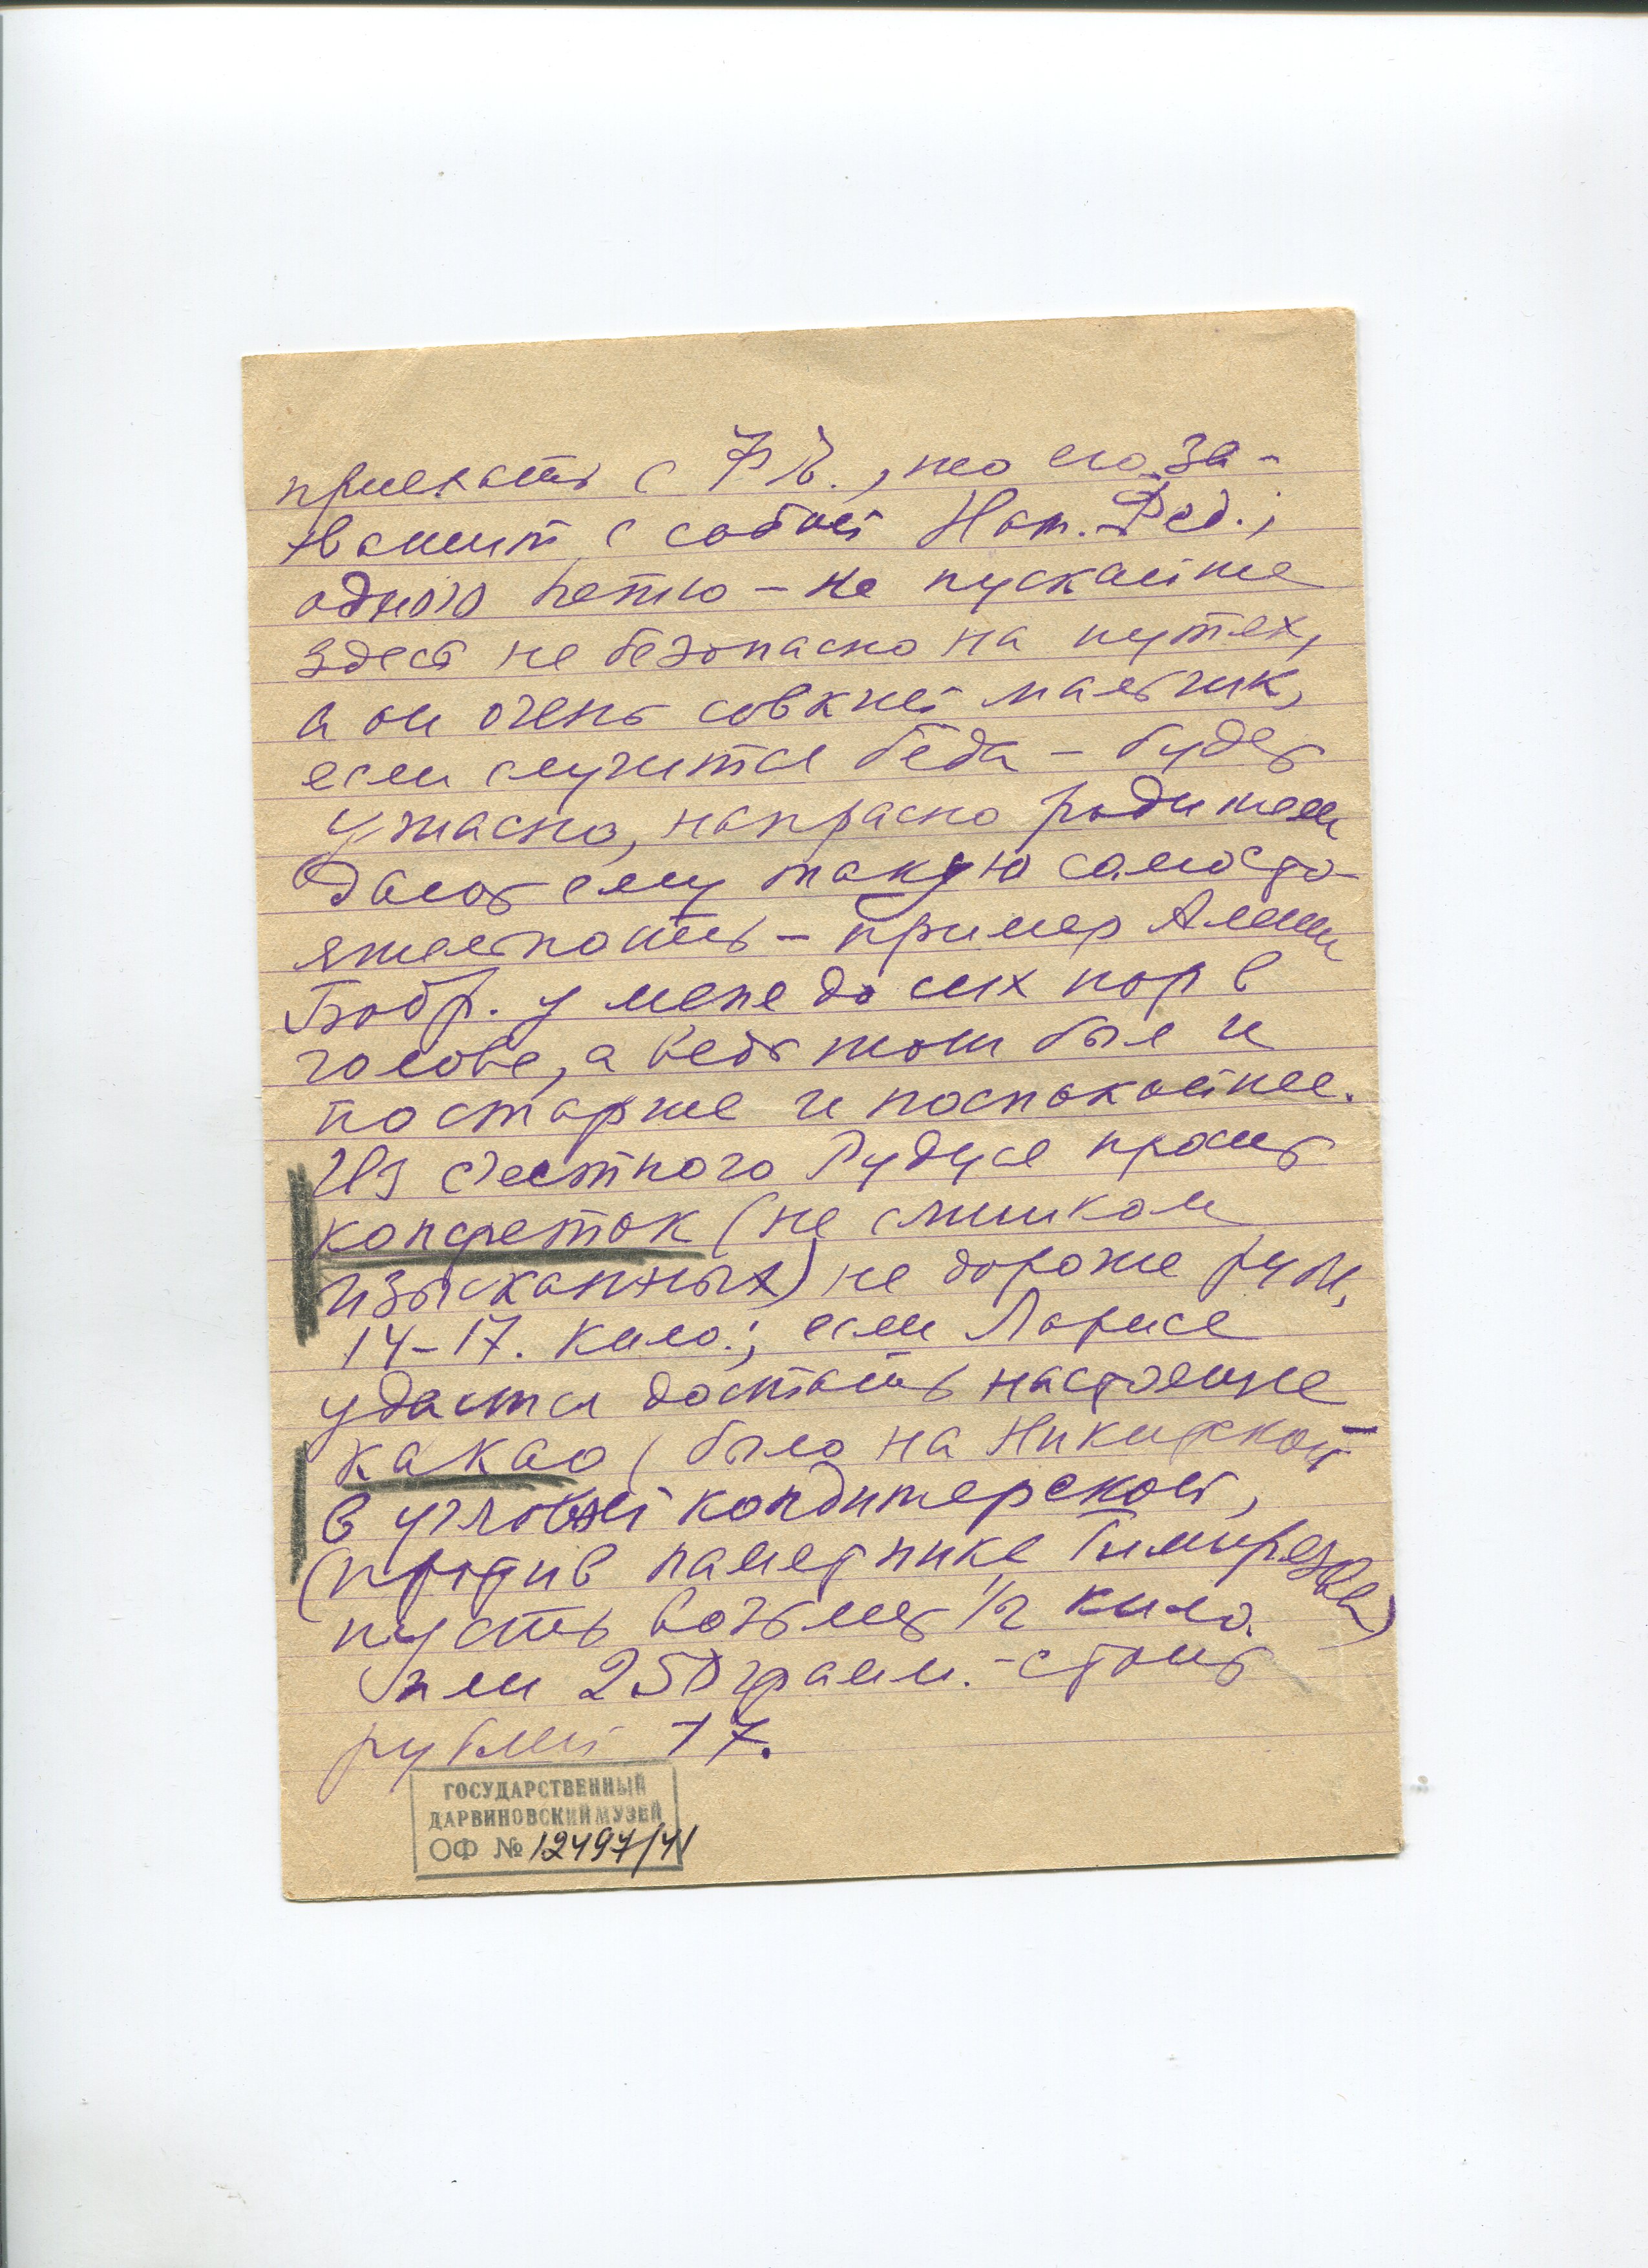 приехать с 7 В., то его за-
хватит с собой Нат. Фед.;
одного Петю – не пускайте
здесь не безопасно на путях,
а он очень совкий мальчик,
если случится беда – будет
ужасно, напрасно родители
дают ему такую самосто-
ятельность – пример Алеши
Бобр. у меня до сих пор в
голове, а ведь тот был и
постарше и поспокойнее.
Из съестного Рудуся просит
конфеток (не слишком
изысканных) не дороже рубл,
14–17. кило.; если Ларисе
удастся достать настоящее
какао (было на Никитской
в угловой кондитерской,
(против памятника Тимирязева)
пусть возьмет 1/2 кило.
или 250 грамм. – стоит
рублей 17.
ГОСУДАРСТВЕННЫЙ
ДАРВИНОВСКИЙ МУЗЕЙ
ОФ № 12497/41